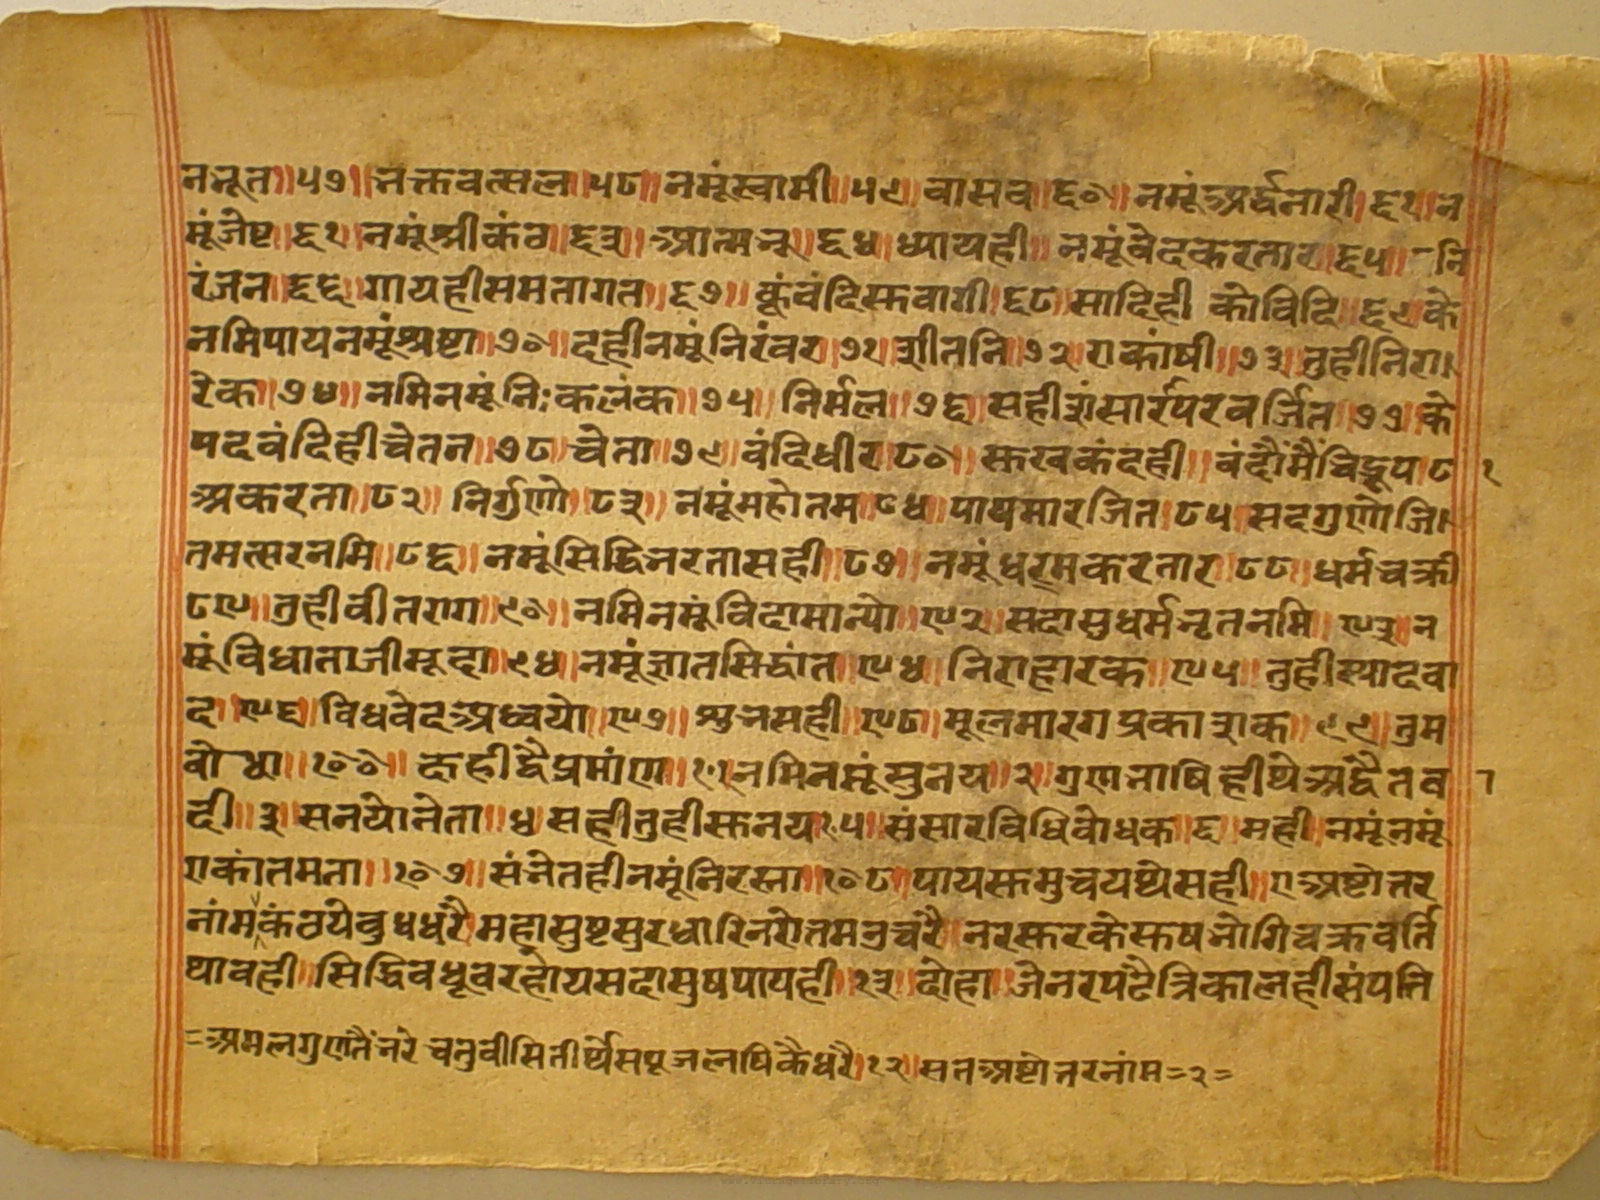 ननूत॥५७॥नक्तवत्सल॥५८॥नमूंस्वामी॥५९॥वासव॥६०॥नमूंअर्द्धनारी॥६१॥न
मूंजेष्ट॥६२॥नमूंश्रीकंठ॥६३॥आत्मनू॥६४॥ध्यायही॥नमूंवेदकरतार॥६५॥नि
रंजन॥६६॥गायहीसमतागत॥६७॥कूंवंदिस्तवागी॥६८॥सादिही कोविदि॥६९॥के
नमिपायनमूंश्रष्टा॥७०॥दहीनमूंनिरंवर॥७१॥शीतनि॥७२॥राकांषी॥७३॥तुहीनिरा
रेक॥७४॥नमिनमूंनिःकलंक॥७५॥निर्मल॥७६॥सहीशंसार्रपरवर्जित॥७७॥के
पदवंदिहीचेतन॥७८॥चेता॥७९॥वंदिधीर॥८०॥स्तखकंदही॥वंदौंमैंचिद्रूप॥८ १
अकरता॥८२॥निर्गुणो॥८३॥नमूंमहोतम॥८४॥पाथमारजित॥८५॥सदगुणोजि
तमत्सरनमि॥८६॥नमूंसिद्धिनरतासही॥८७॥नमूंधरमकरतार॥८८॥धर्मचक्री
८९॥तुहीवीतराग॥९०॥नमिनमूंविदामान्यो॥९२॥सदासुधर्मनृतनमि॥९३॥न
मूंविधाताजीमूदा॥९४॥नमूंज्ञातसिद्धांत॥९४॥निराहारक॥९५॥तुहीस्यादवा
द॥९६॥विधवेदअध्वयो॥९७॥शुनसही॥९८॥मूलमारगप्रकाशक॥९९॥तुम
बोधा॥१००॥कहीद्वैप्रमांण॥१॥नमिनमूंसुनय॥२॥गुणनाषिहीथेअद्वैतव
दी॥३॥सनयोनेता॥४॥सहीतुहीस्तनय॥५॥संसारविधिबोधक॥६॥मही॥नमूंनमूं
राकांतमता॥१०७॥संनेतहीनमूंनिरस्ता॥१०८॥पायस्तमुच्चयथेसही॥एअष्टोत्तर
नांमकंठयेवुधधरै॥महासुष्टसुरधारिनरोतमनुचरै॥नरस्तरकेस्तषनोगिचक्रवर्ति
थावही॥सिद्धिवधूवरहोयसदासुषपायही॥१३॥दोहा॥जेनरपटैत्रिकालहीसंपति
=अमलगुणतैंनरेचतुवीसितीर्थेसपूजलषिकैधरै॥१२॥सतअष्टोत्तरनांम=२=